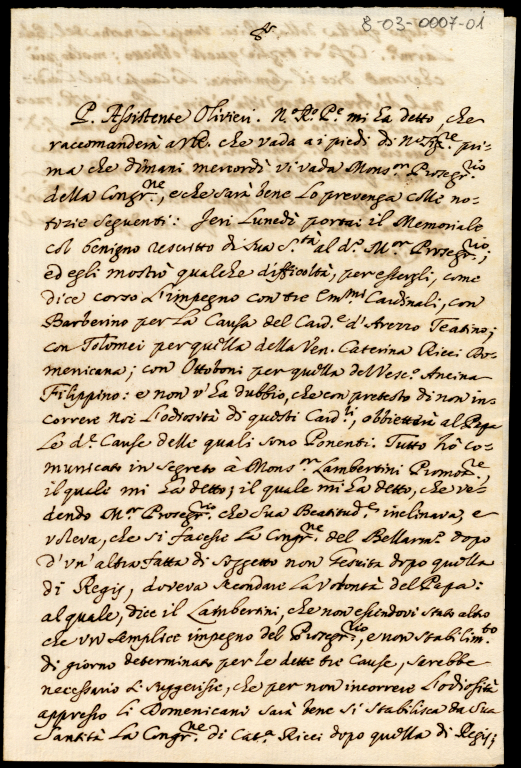 8-03-0007-01
P. Assistente Olivieri. N.ro R.o P.e mi ha detto, che
raccomanderà a V.R. che vada a i piedi di N.ro Sig.re pri-
ma che dimani mercordì vi vada Mons.or Prosegr.rio
della Congr.ne, e che sarà bene lo prevenga colle no-
tizie seguenti: Jeri Lunedì portai il Memoriale
col benigno rescritto di Sua S.tà al d.o M.or Prosegr.rio;
ed egli mostrò qualche difficoltà, per essergli, come
dice corso l'impegno con tre Em.mi Cardinali, con
Barberino per la Causa del Card.e d'Arezzo Teatino;
con Tolomei per quella della Ven. Caterina Ricci Do-
menicana; con Ottoboni per quella del Vesc.o Ancina
Filippino: e non v'ha dubbio, che con pretesto di non in-
correre noi l'odiosità di questi Card.li, obbietterà al Papa
le d.e Cause delle quali sono Ponenti. Tutto hò co-
municato in segreto à Mons.or Lambertini Promor.re,
il quale mi hà detto; il quale mi hà detto, che ve-
dendo M.or Prosegr.rio che Sua Beatitud.e inclinava, e
voleva, che si facesse la Congr.ne del Bellarm.o dopo
d'un'altra fatta di soggetto non Gesuita dopo quella
di Regis, doveva secondare la volontà del Papa:
al quale, dice il Lambertini, che non essendovi stato altro
che un semplice impegno del Prosegr.rio, e non stabilim.to
di giorno determinato per le dette tre Cause, sarebbe
necessario si suggerisse, che per non incorrere l'odiosità
appresso li Domenicani sarà bene si stabilisca da Sua
Santità la Congr.ne di Cat.a Ricci dopo quella di Regis;